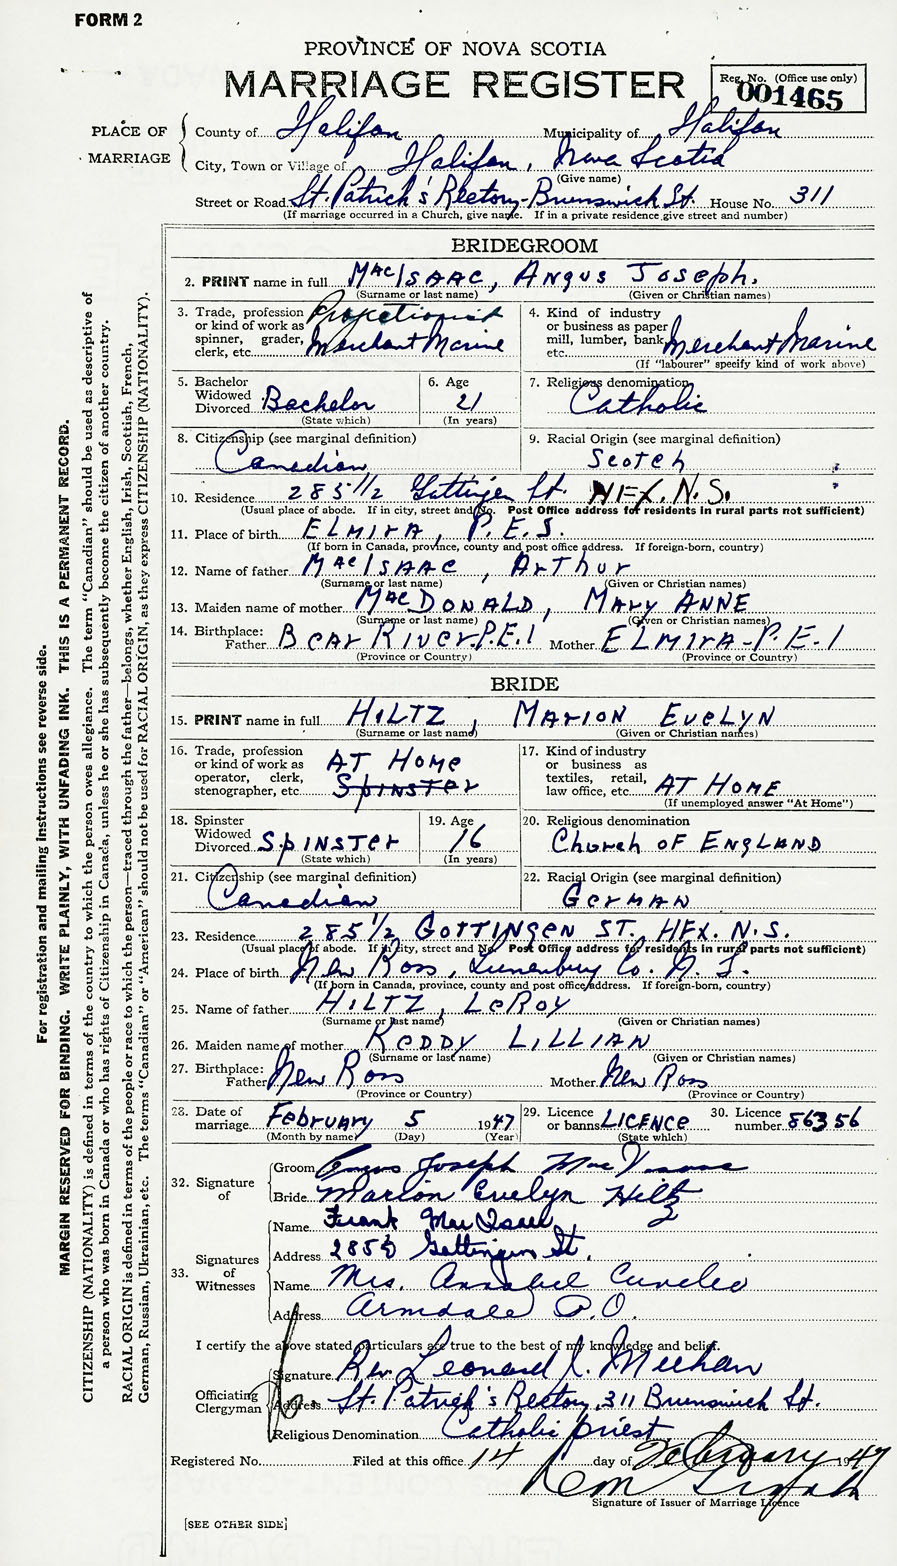 FORM 2
PROVINCE OF NOVA SCOTIA
MARRIAGE REGISTER
Reg. No. (Office use only)
001465
PLACE OF MARRIAGE
County of Halifax Municipality of Halifax
City, Town or Village of Halifax, Nova Scotia
(Give name)
Street or Road St. Patrick's Rectory-Brunswick St. House No. 311
(If marriage occurred in a Church, give name. If in a private residence give street and number)
BRIDEGROOM
2. PRINT name in full MacISAAC, ANGUS JOSEPH.
(Surname or last name) (Given or Christian names)
3. Trade, profession or kind of work as spinner, grader, clerk, etc. Merchant Marine
4. Kind of industry or business as paper mill, lumber, bank, etc. Merchant Marine
(If "labourer" specify kind of work above)
5. Bachelor Widowed Divorced Bachelor
(State which)
6. Age 21
(In years)
7. Religious denomination Catholic
8. Citizenship (see marginal definition) Canadian
9. Racial Origin (see marginal definition) Scotch
10. Residence 285 1/2 Gottingen St. HFX. N.S.
(Usual place of abode. If in city, street and No. Post Office address for residents in rural parts not sufficient)
11. Place of birth ELMIRA, P.E.S.
(If born in Canada, province, county and post office address. If foreign-born, country)
12. Name of father MacISAAC, ArThur
(Surname or last name) (Given or Christian names)
13. Maiden name of mother MacDONALD, MAry ANNE
(Surname or last name) (Given or Christian names)
14. Birthplace: Father BeAr RIVEr-P.E.I Mother ELMIrA-P.E.I
(Province or Country) (Province or Country)
BRIDE
15. PRINT name in full HILTZ, MArION EveLYN
(Surname or last name) (Given or Christian names)
16. Trade, profession or kind of work as operator, clerk, stenographer, etc. AT HOMe
SpINSTer
17. Kind of industry or business as textiles, retail, law office, etc. AT HOME
(If unemployed answer "At Home")
18. Spinster Widowed Divorced SpINSTer
(State which)
19. Age 16
(In years)
20. Religious denomination Church OF ENGLAND
21. Citizenship (see marginal definition) Canadian
22. Racial Origin (see marginal definition) GerMAN
23. Residence 285 1/2 GOTTINGEN ST. HFX. N.S.
(Usual place of abode. If in city, street and No. Post Office address for residents in rural parts not sufficient)
24. Place of birth New Ross, Lunenburg Co. N.S.
(If born in Canada, province, county and post office address. If foreign-born, country)
25. Name of father HILTZ, LeROY
(Surname or last name) (Given or Christian names)
26. Maiden name of mother REDDY LILLIAN
(Surname or last name) (Given or Christian names)
27. Birthplace: Father New Ross Mother New Ross
(Province or Country) (Province or Country)
28. Date of marriage February 5 1947
(Month by name) (Day) (Year)
29. Licence or banns LICENCe
(State which)
30. Licence number 86356
32. Signature of
Groom Angus Joseph MacIsaac
Bride Marion Evelyn Hiltz
33. Signatures of Witnesses
Name Frank MacIsaac
Address 285½ Gottingen St.
Name Mrs. Annabel
Address Armdale P.O.
I certify the above stated particulars are true to the best of my knowledge and belief.
Officiating Clergyman
Signature Rev. Leonard J. Meehan
Address St. Patrick's Rectory, 311 Brunswick St.
Religious Denomination Catholic priest
Registered No. Filed at this office 14 day of February 1947
Signature of Issuer of Marriage Licence
[SEE OTHER SIDE]
For registration and mailing instructions see reverse side.
MARGIN RESERVED FOR BINDING. WRITE PLAINLY, WITH UNFADING INK. THIS IS A PERMANENT RECORD.
CITIZENSHIP (NATIONALITY) is defined in terms of the country to which the person owes allegiance. The term "Canadian" should be used as descriptive of
a person who was born in Canada or who has rights of Citizenship in Canada, unless he or she has subsequently become the citizen of another country.
RACIAL ORIGIN is defined in terms of the people or race to which the person—traced through the father—belongs, whether English, Irish, Scottish, French,
German, Russian, Ukrainian, etc. The terms "Canadian" or "American" should not be used for RACIAL ORIGIN, as they express CITIZENSHIP (NATIONALITY).